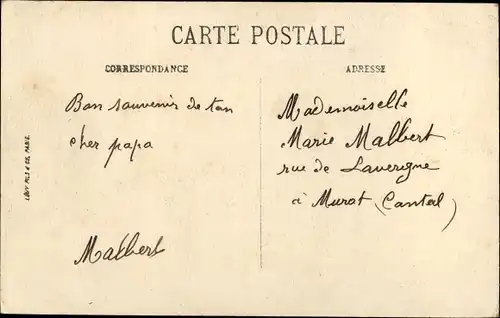 CARTE POSTALE
CORRESPONDANCE
ADRESSE
Bon souvenir de ton
cher papa
Malbert
Mademoiselle
Marie Malbert
rue de Lavergne
à Murat (Cantal)
LÉVY FILS & CIE, PARIS.